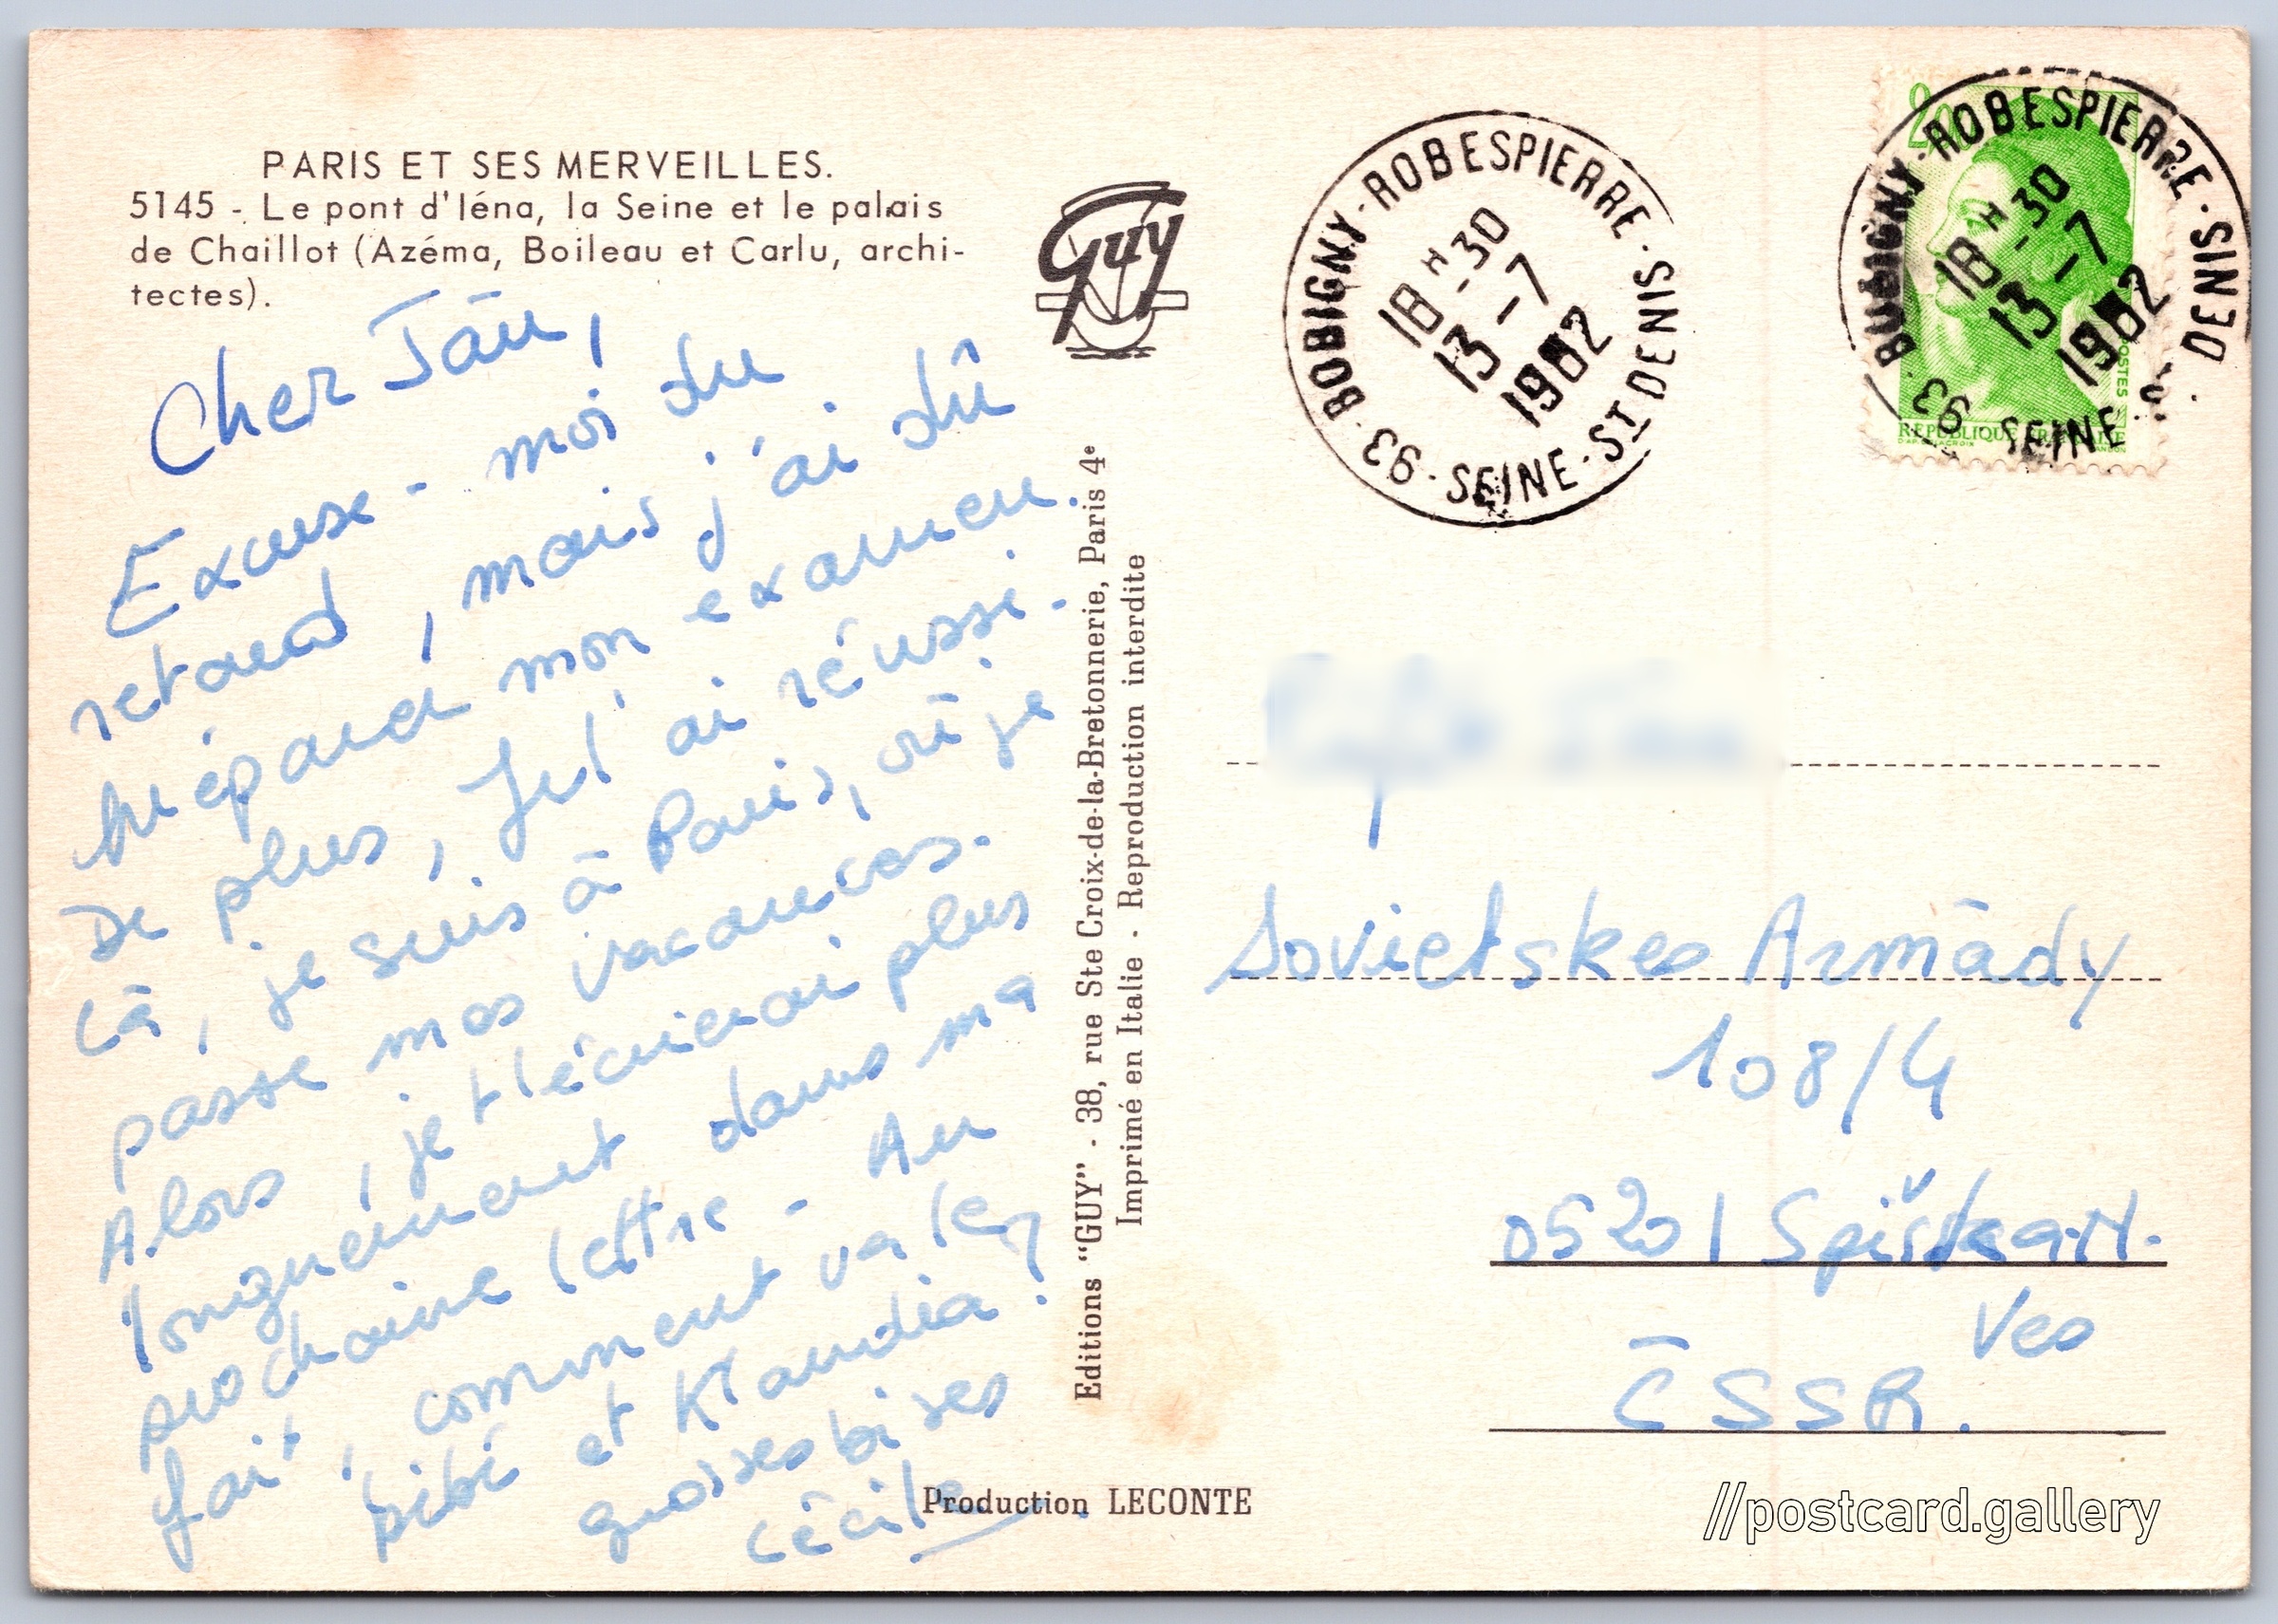 PARIS ET SES MERVEILLES.
5145 - Le pont d'Iéna, la Seine et le palais
de Chaillot (Azéma, Boileau et Carlu, archi-
tectes).
Guy
Cher Jān,
Excuse-moi du
retard, mais j'ai dû
préparer mon examen.
De plus, je l'ai réussi.
Là, je suis à Paris, où je
passe mes vacances.
Alors, je t'écrierai plus
longuement dans ma
prochaine lettre. Au
fait, comment va le
bébé et Klaudia?
grosses bises
Cécile
Editions "GUY" - 38, rue Ste Croix-de-la-Bretonnerie, Paris 4e
Imprimé en Italie - Reproduction interdite
Production LECONTE
BOBIGNY-ROBESPIERRE · 93 · SEINE-ST DENIS
18H-30
13-7
1982
BOBIGNY-ROBESPIERRE · 93 · SEINE · DENIS
18H-30
13-7
1982
POSTES
REPUBLIQUE FRANÇAISE
Sovietskeo Armādy
108/4
05201 Spišska N.
Ves
ČSSR.
//postcard.gallery